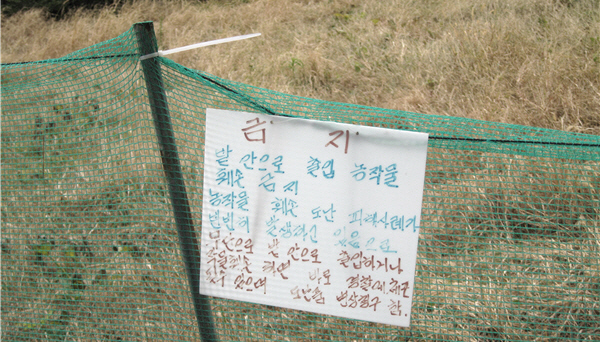 금 지
밭 안으로 출입 농작물
훼손 금지
농작물 훼손 도난 피해사례가
빈번히 발생하고 있음으로
밭 안으로 출입하거나
하면 바로 경찰에
있으며 변상청구 함.